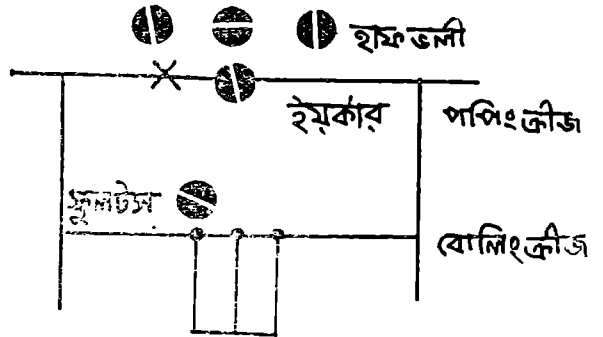 হাফ ভলী
ইয়র্কার
পপিং ক্রীজ
ফুলটস
বোলিং ক্রীজ